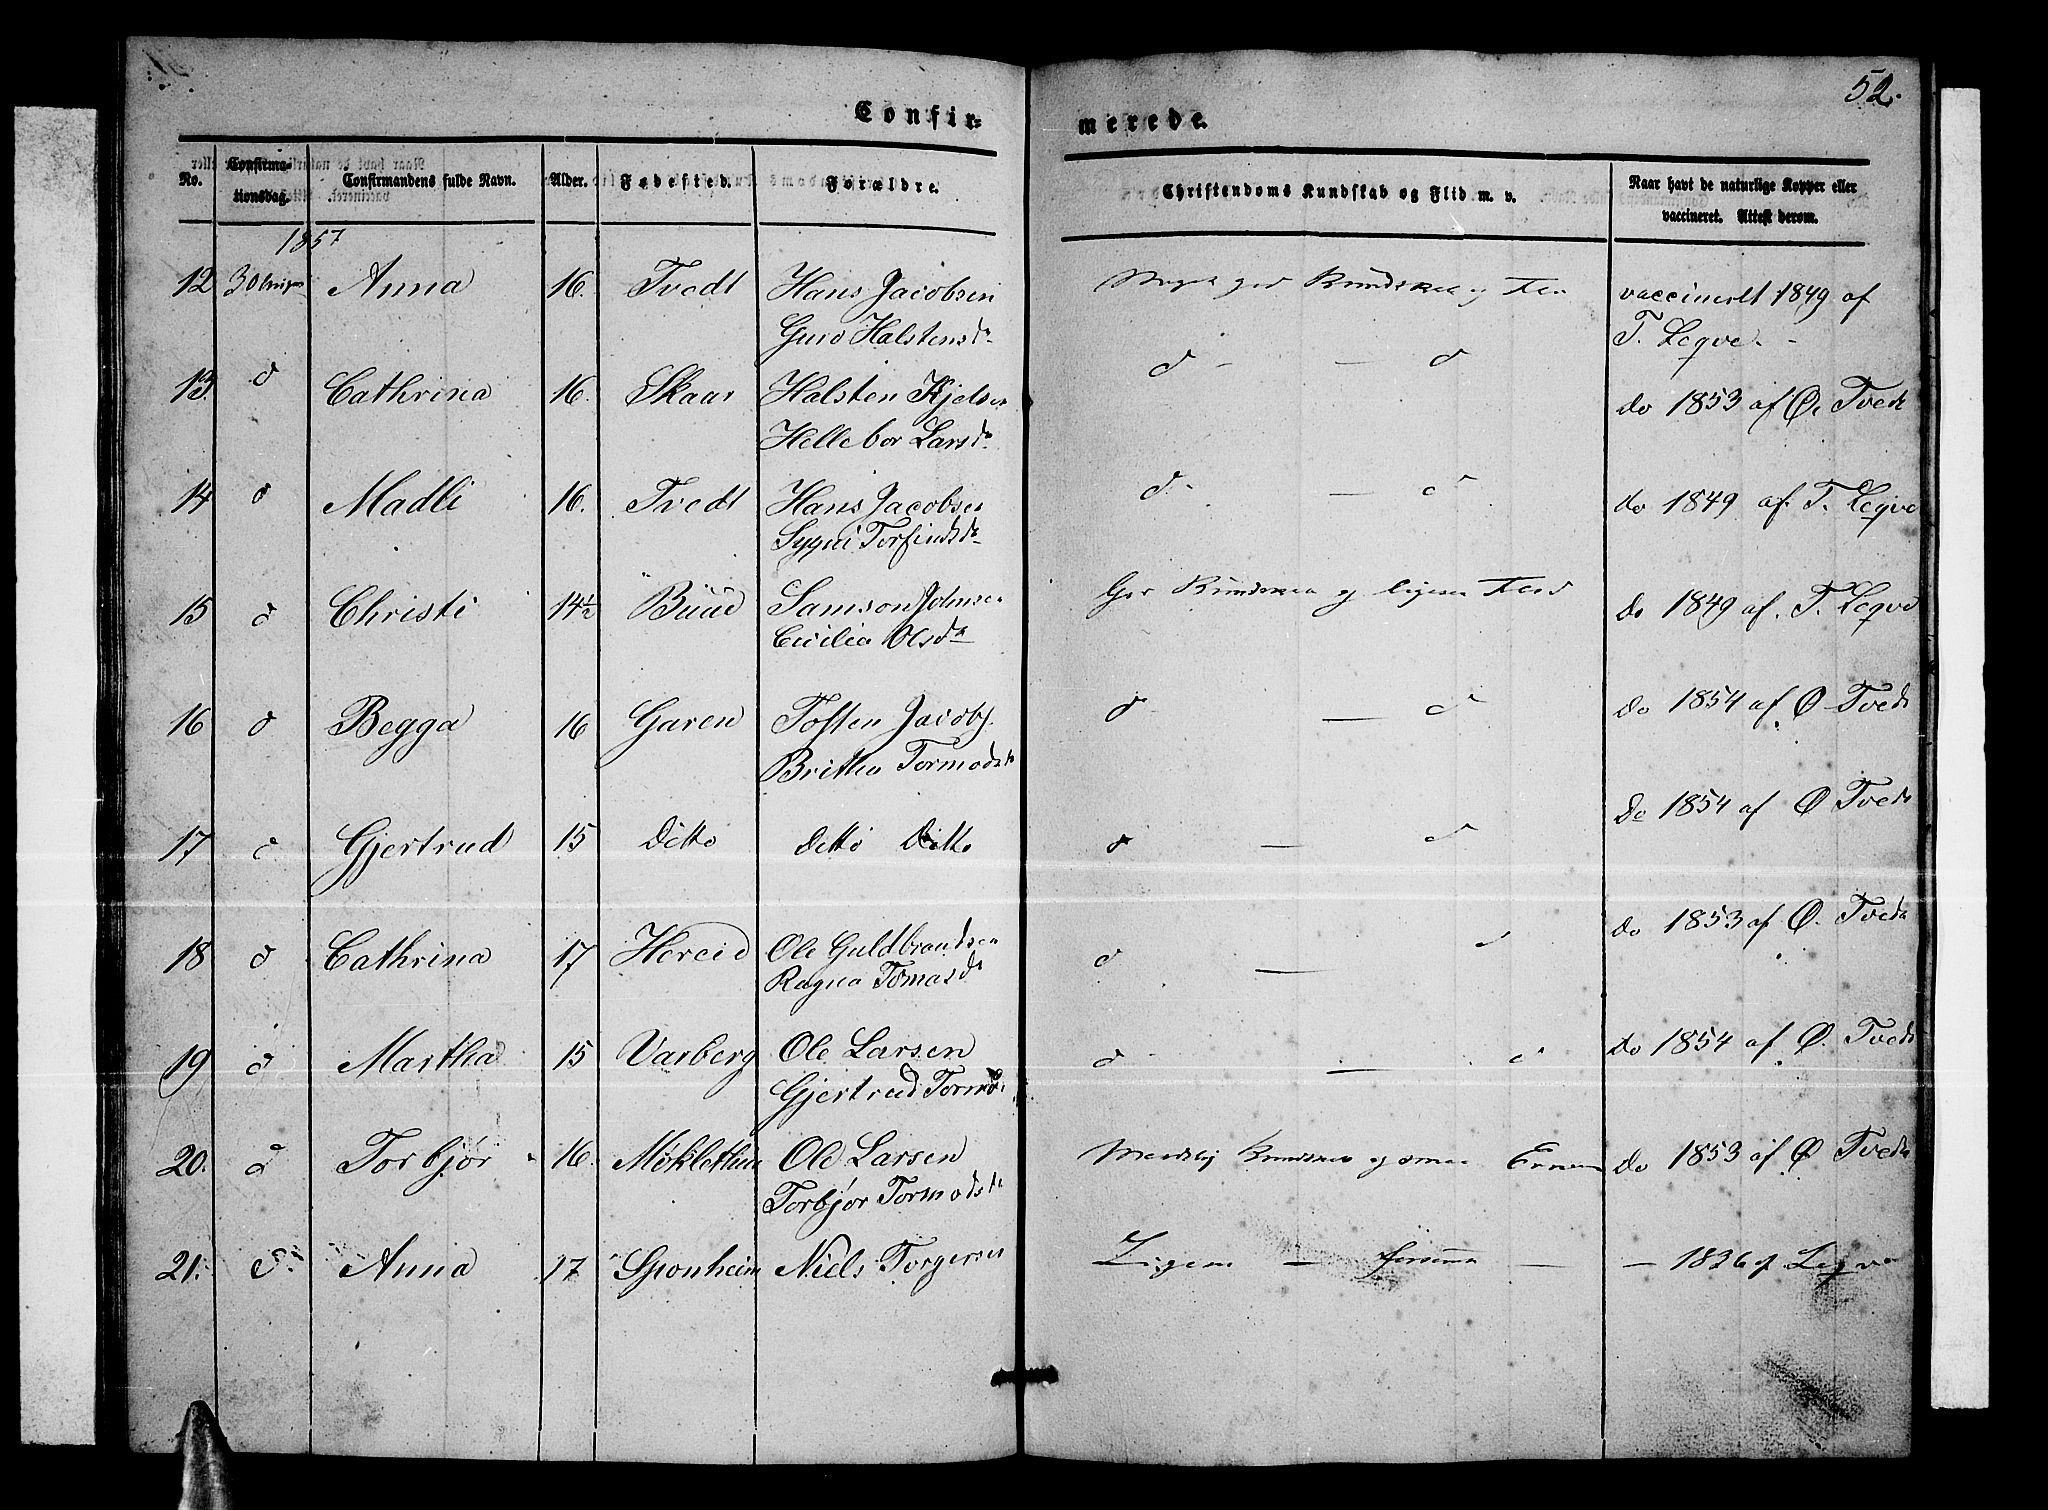 52.
Confir=
merede.
No.
Confirma-
tionsdag.
Confirmandens fulde Navn.
Alder.
Fødested.
Forældre.
Christendoms Kundskab og Flid m. v.
Naar havt de naturlige Kopper eller
vaccineret. Attest derom.
1857
12 Anna 16. Tvedt Hans Jacobsen
Guro Halstensdr
vaccineret 1849 af
T. Leqve. -
13. d Cathrina 16. Skaar Halsten Kjelsen
Hellebor Larsdr
d - — d
do 1853 af Ø. Tvedt
14 d Madli 16. Tvedt Hans Jacobsen
Sygni Torfindsdr
d - — d
do 1849 af T. Leqve
15 d Christi 14½ Buud Samson Johnsen
Cicilia Olsdr
God Kundskab og Flid
do 1849 af T. Leqve
16 d Begga 16 Garen Tosten Jacobs.
Britha Tormodsdr
d — d
do 1854 af Ø Tvedt
17 d Gjertrud 15 Ditto Ditto Ditto
d — d
do 1854 af Ø Tvedt
18 d Cathrina 17 Hereid Ole Guldbrandsen
Ragna Tomasdr
d — d
do 1853 af Ø. Tvedt
19 d Martha 15 Varberg Ole Larsen
Gjertrud Tormo
d — d
do 1854 af Ø. Tvedt
20. d Torbjør 16. Møklethun Ole Larsen
Torbjør Tormodsdr
Kundskab og
do 1853 af Ø Tvedt
21. d Anna 17 Sponheim Niels Torgersen
— —
— 1836 af Leqve